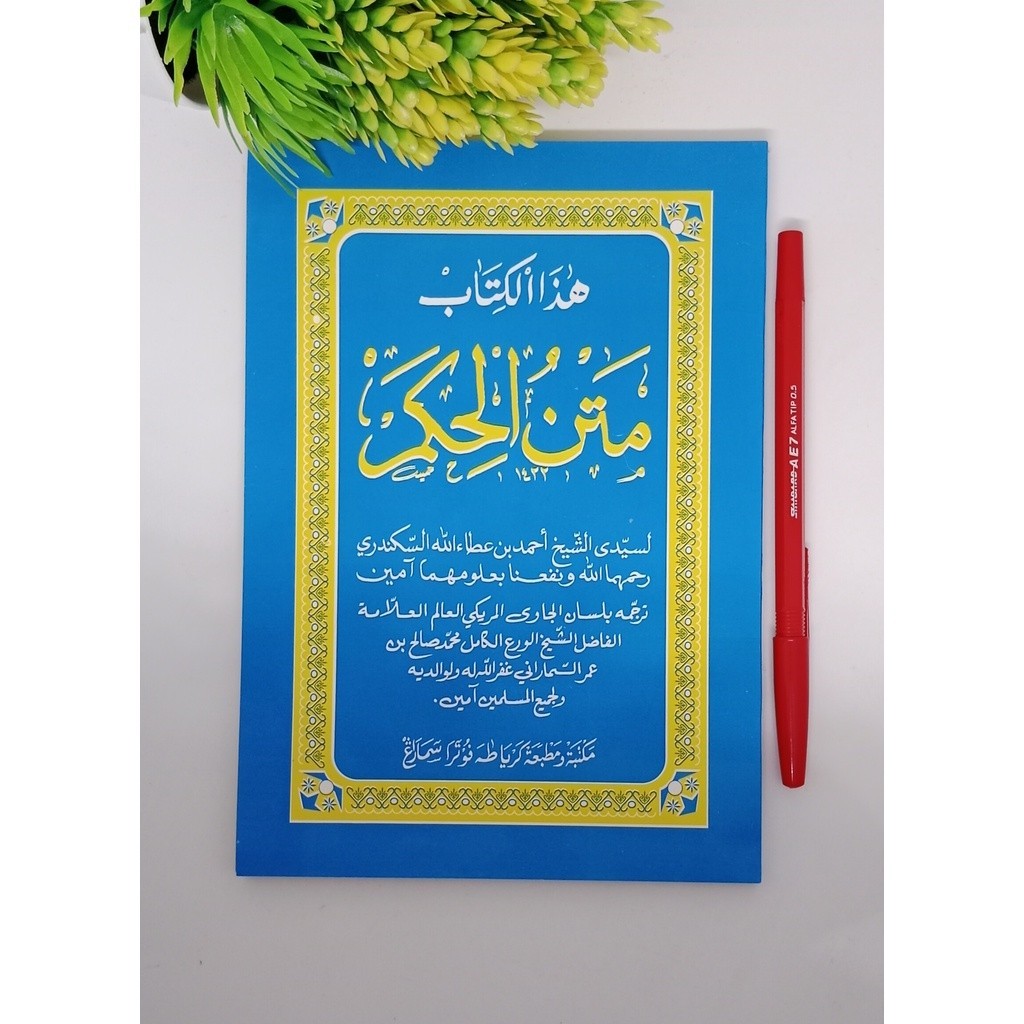 هٰذَا الْكِتَابْ
مَتْنُ الْحِكَمْ
١٤٢٢
لسيّدى الشّيخ أحمد بن عطاء الله السّكندري
رحمهما الله ونفعنا بعلومهما آمين
ترجّمه بلسان الجاوى المريكي العالم العلّامة
الفاضل الشّيخ الورع الكامل محمّد صالح بن
عمر السّماراني غفر اللّه له ولوالديه
ولجميع المسلمين آمين .
مَكْتَبَةْ ومَطْبَعَةْ كَرْيَا طٰهَ فُوْتْرَا سَمَارَاڠْ
STANDARD AE7 ALFA TIP 0.5